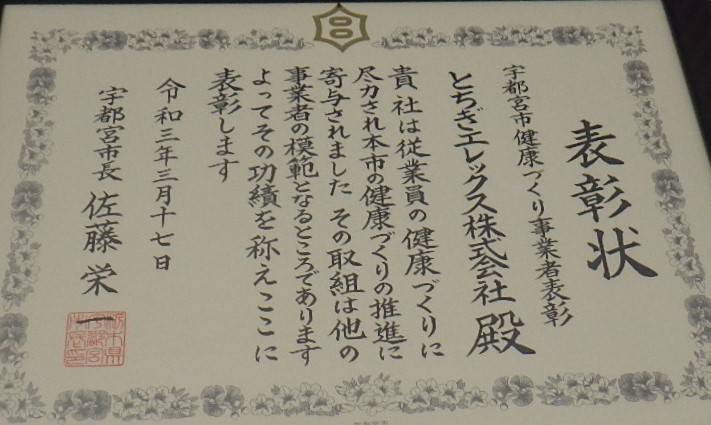 表彰状
宇都宮市健康づくり事業者表彰
とちぎエレックス株式会社 殿
貴社は従業員の健康づくりに
尽力され本市の健康づくりの推進に
寄与されました その取組は他の
事業者の模範となるところであります
よってその功績を称えここに
表彰します
令和三年三月十七日
宇都宮市長 佐藤栄一